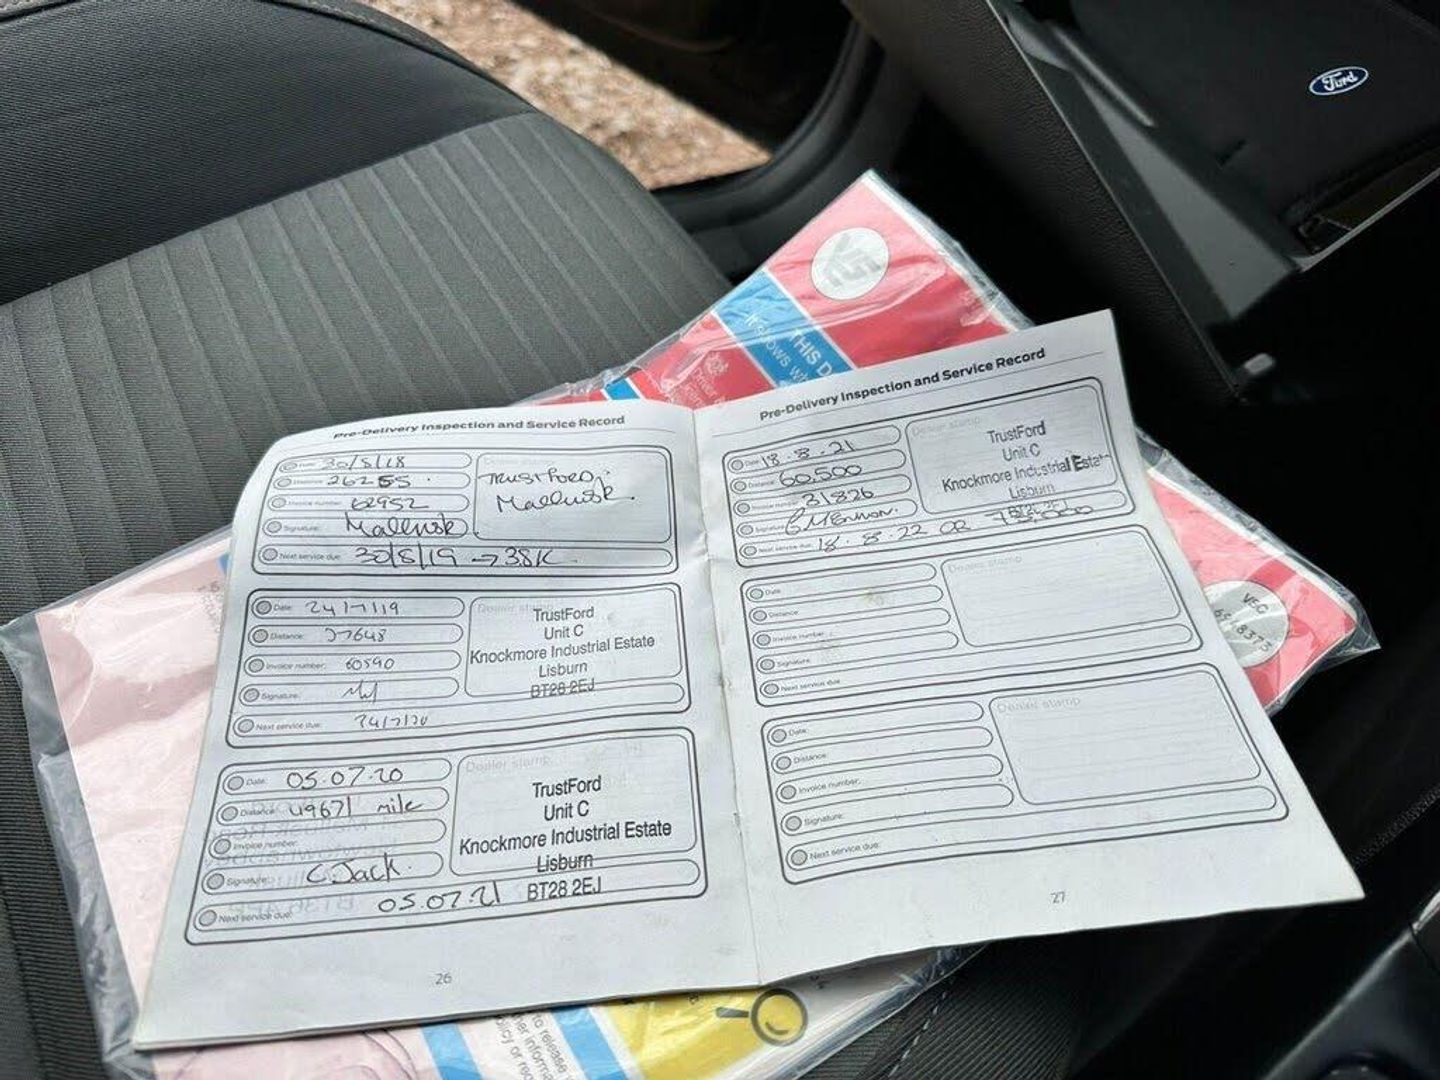 Ford
V5
THIS D
It shows w
Pre-Delivery Inspection and Service Record
Date: 30/8/18
Distance: 26255
Invoice number: 62952
Signature: Mallusk
Next service due: 30/8/19 → 38K
TrustFord
Mallusk
Date: 24/7/19
Distance: 37648
Invoice number: 60590
Signature:
Next service due: 24/7/20
Dealer stamp
TrustFord
Unit C
Knockmore Industrial Estate
Lisburn
BT28 2EJ
Date: 05.07.20
Distance: 49671 mile
Invoice number:
Signature: C Jack.
Next service due: 05.07.21
Dealer stamp
TrustFord
Unit C
Knockmore Industrial Estate
Lisburn
BT28 2EJ
26
Pre-Delivery Inspection and Service Record
Date: 18.8.21
Distance: 60,500
Invoice number: 31826
Signature:
Next service due: 18.8.22 OR 73,000
Dealer stamp
TrustFord
Unit C
Knockmore Industrial Estate
Lisburn
Date:
Distance:
Invoice number:
Signature:
Next service due:
Dealer stamp
Date:
Distance:
Invoice number:
Signature:
Next service due:
Dealer stamp
27
to release